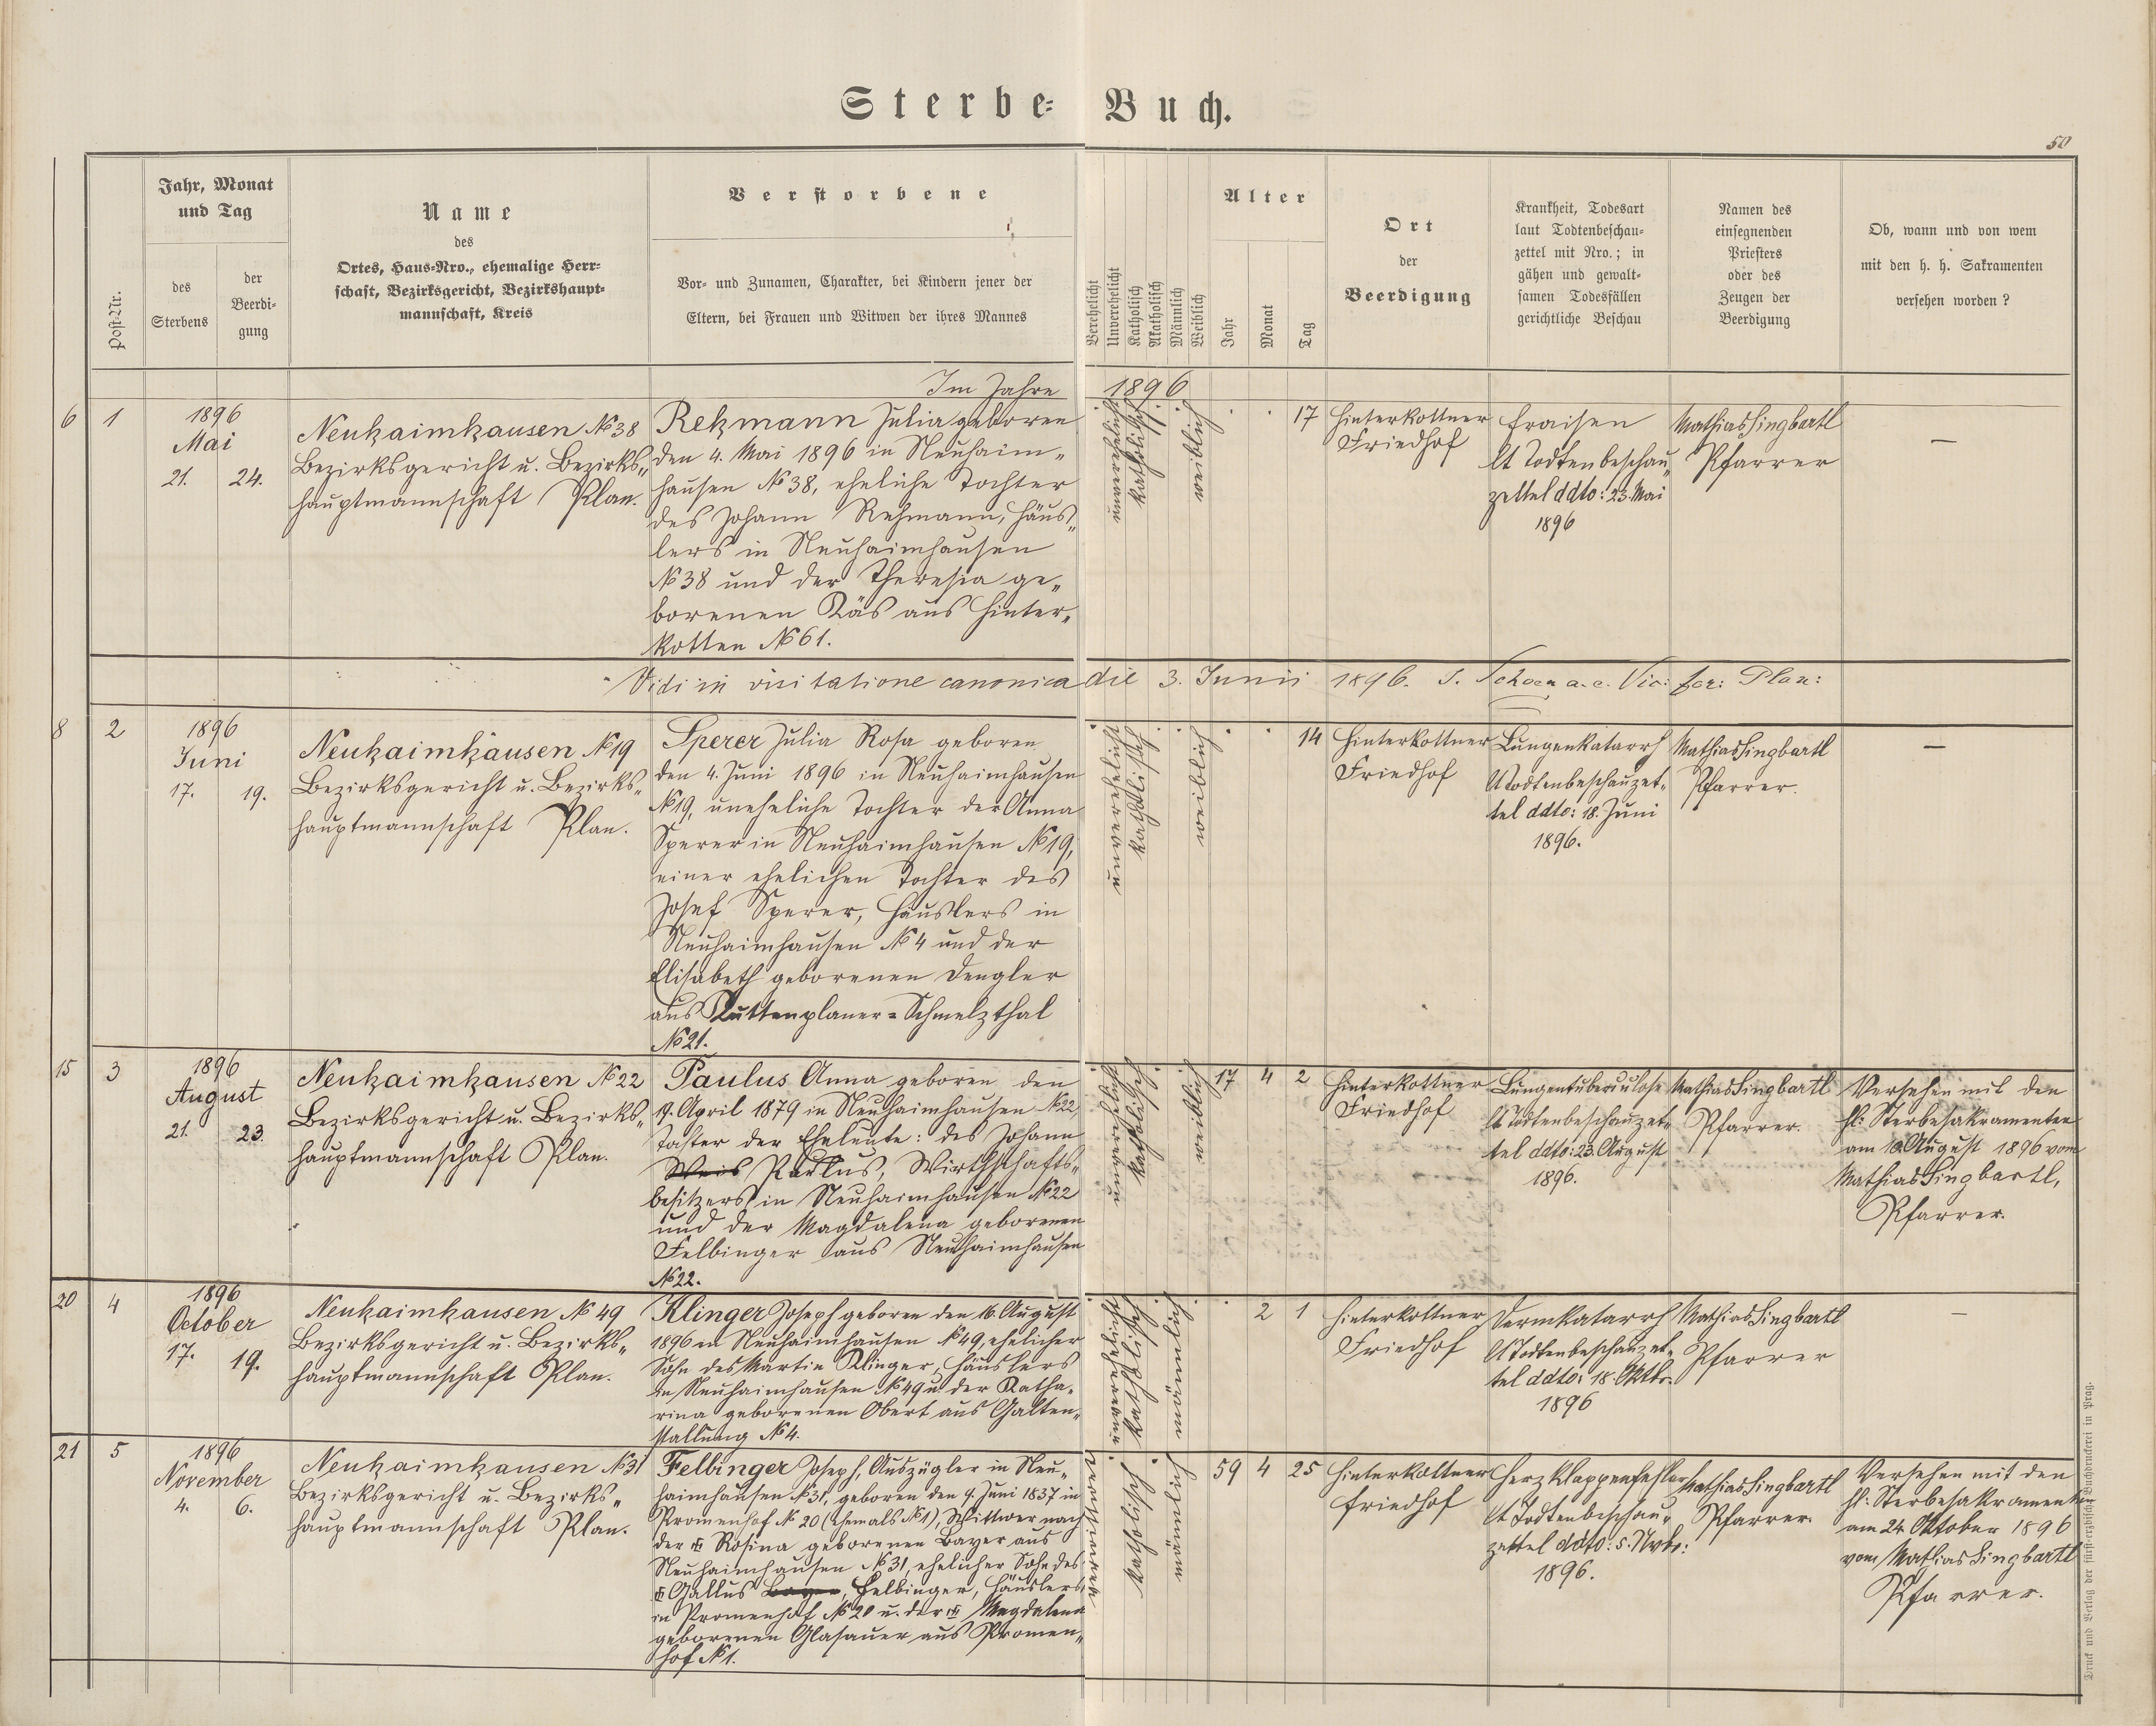 Sterbe-Buch.
50
Post-Nr.
Jahr, Monat
und Tag
des
Sterbens
der
Beerdi-
gung
Name
des
Ortes, Haus-Nro., ehemalige Herr-
schaft, Bezirksgericht, Bezirkshaupt-
mannschaft, Kreis
Verstorbene
Vor- und Zunamen, Charakter, bei Kindern jener der
Eltern, bei Frauen und Witwen der ihres Mannes
Verehelicht
Unverehelicht
Katholisch
Akatholisch
Männlich
Weiblich
Alter
Jahr
Monat
Tag
Ort
der
Beerdigung
Krankheit, Todesart
laut Todtenbeschau-
zettel mit Nro.; in
gähen und gewalt-
samen Todesfällen
gerichtliche Beschau
Namen des
einsegnenden
Priesters
oder des
Zeugen der
Beerdigung
Ob, wann und von wem
mit den h. h. Sakramenten
versehen worden?
Im Jahre 1896
6 1
1896
Mai
21. 24.
Neuhaimhausen No 38
Bezirksgericht u. Bezirks-
hauptmannschaft Plan.
Rehmann Julia geboren
den 4. Mai 1896 in Neuhaim-
hausen No 38, eheliche Tochter
des Johann Rehmann, Häus-
lers in Neuhaimhausen
No 38 und der Theresia ge-
borenen Käs aus Hinter-
kotten No 61.
unverehelicht
katholisch
weiblich
17
Hinterkottner
Friedhof
Fraisen
lt Todtenbeschau-
zettel ddto: 23. Mai
1896
Mathias Singbartl
Pfarrer
—
Vidi in visitatione canonica die 3. Junii 1896. J. Schoen a. e. Vic: for: Plan:
8 2
1896
Juni
17. 19.
Neuhaimhausen No 19
Bezirksgericht u. Bezirks-
hauptmannschaft Plan.
Sperer Julia Rosa geboren
den 4. Juni 1896 in Neuhaimhausen
No 19, uneheliche Tochter der Anna
Sperer in Neuhaimhausen No 19,
einer ehelichen Tochter des
Josef Sperer, Häuslers in
Neuhaimhausen No 4 und der
Elisabeth geborenen Dengler
aus Kuttenplaner-Schmelzthal
No 21.
unverehelicht
katholisch
weiblich
14
Hinterkottner
Friedhof
Lungenkatarrh
lt Todtenbeschauzet-
tel ddto: 18. Juni
1896.
Mathias Singbartl
Pfarrer.
—
15 3
1896
August
21. 23.
Neuhaimhausen No 22
Bezirksgericht u. Bezirks-
hauptmannschaft Plan.
Paulus Anna geboren den
19. April 1879 in Neuhaimhausen No 22
Tochter der Eheleute: des Johann
Weis Paulus, Wirthschafts-
besitzers in Neuhaimhausen No 22
und der Magdalena geborenen
Felbinger aus Neuhaimhausen
No 22.
unverehelicht
katholisch
weiblich
17 4 2
Hinterkottner
Friedhof
Lungentuberculose
lt Todtenbeschauzet-
tel ddto: 23. August
1896.
Mathias Singbartl
Pfarrer.
Versehen mit den
hl: Sterbesakramenten
am 10. August 1896 vom
Mathias Singbartl,
Pfarrer.
20 4
1896
October
17. 19.
Neuhaimhausen No 49
Bezirksgericht u. Bezirks-
hauptmannschaft Plan.
Klinger Joseph geboren den 16. August
1896 in Neuhaimhausen No 49, ehelicher
Sohn des Martin Klinger, Häuslers
in Neuhaimhausen No 49 u. der Katha-
rina geborenen Obert aus Galten-
stallung No 4.
unverehelicht
katholisch
männlich
2 1
Hinterkottner
Friedhof
Darmkatarrh
lt Todtenbeschauzet-
tel ddto: 18. Oktbr.
1896
Mathias Singbartl
Pfarrer
—
21 5
1896
November
4. 6.
Neuhaimhausen No 31
Bezirksgericht u. Bezirks-
hauptmannschaft Plan.
Felbinger Joseph, Auszügler in Neu-
haimhausen No 31, geboren den 9. Juni 1837 in
Promenhof No 20 (ehemals No 1), Wittwer nach
der † Rosina geborenen Bayer aus
Neuhaimhausen No 31, ehelicher Sohn des
† Gallus Bayer, Felbinger, Häuslers
in Promenhof No 20 u. der † Magdalena
geborenen Glasauer aus Promen-
hof No 1.
verwitwet
katholisch
männlich
59 4 25
Hinterkottner
Friedhof
Herzklappenfehler
lt Todtenbeschau-
zettel ddto: 5. Nvbr:
1896.
Mathias Singbartl
Pfarrer.
Versehen mit den
hl: Sterbesakramenten
am 24. Oktober 1896
vom Mathias Singbartl
Pfarrer.
Druck und Verlag der fürst-erzbischöfl. Buchdruckerei in Prag.